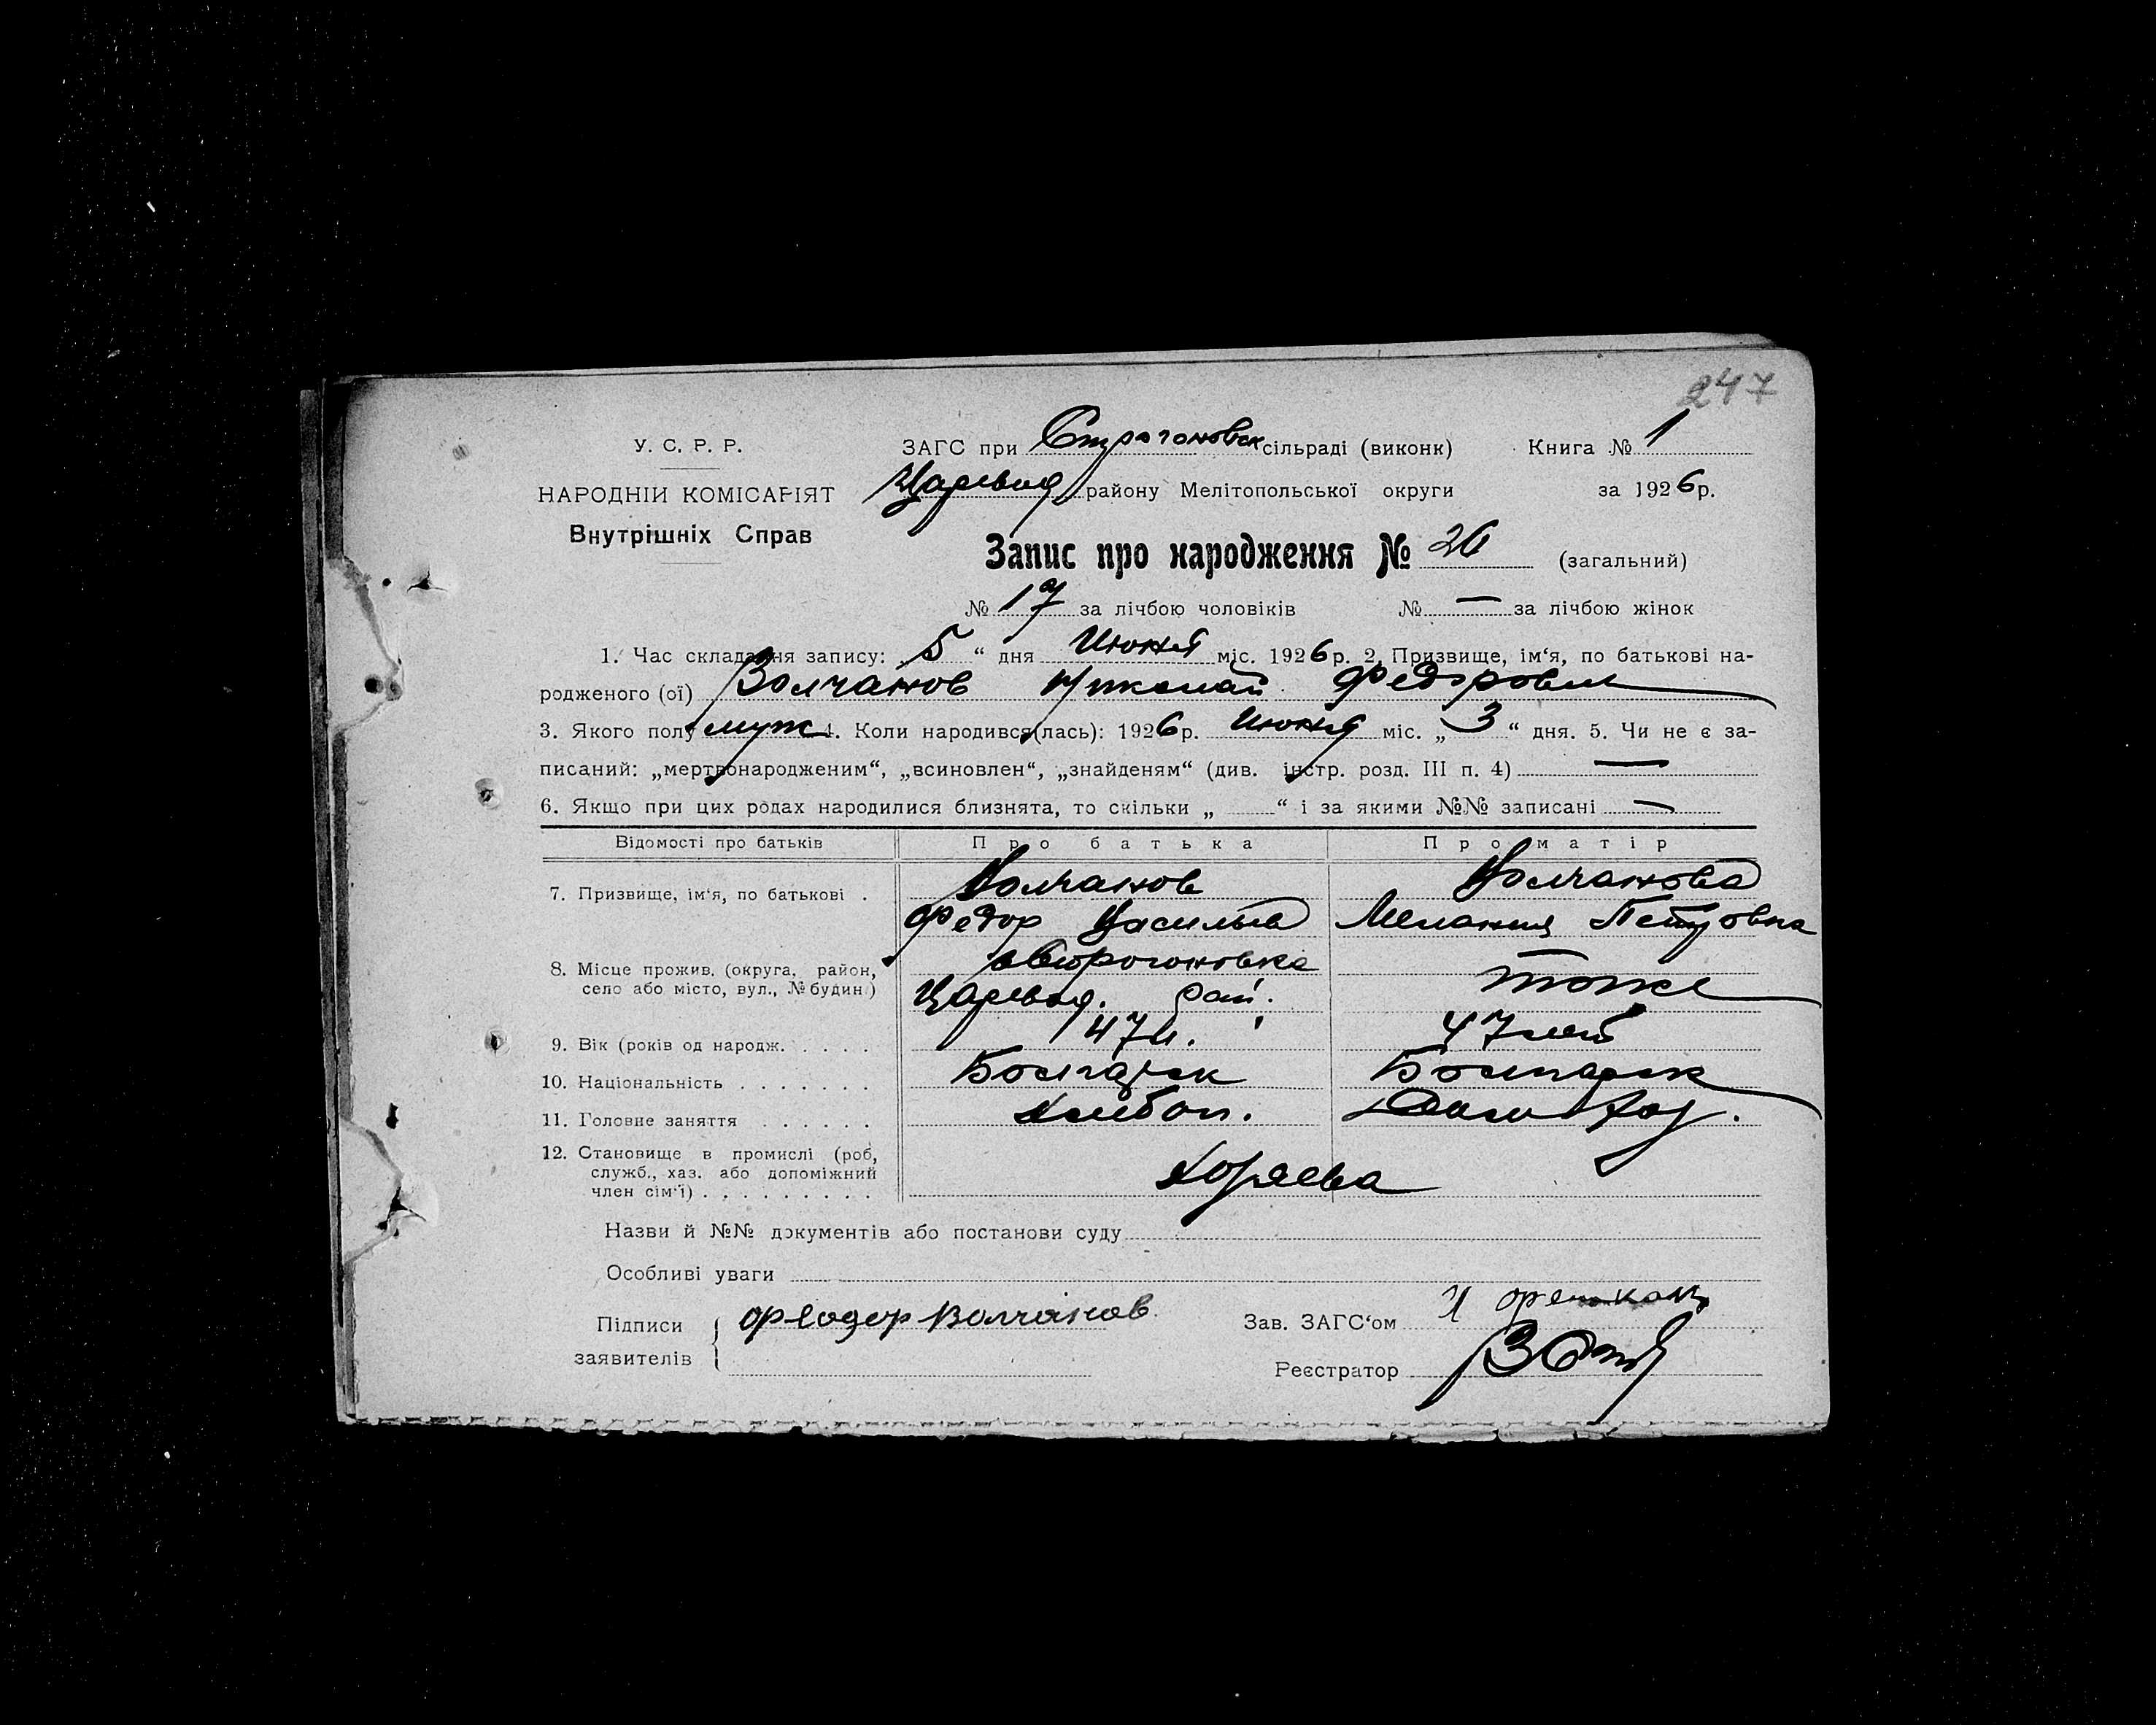 247
У. С. Р. Р.
ЗАГС при Строгоновск сільраді (виконк) Книга № 1
НАРОДНІЙ КОМІСАРІЯТ Царевод району Мелітопольської округи за 1926 р.
Внутрішніх Справ
Запис про народження № 26 (загальний)
№ 17 за лічбою чоловіків № — за лічбою жінок
1. Час складання запису: 5 “ дня Июня міс. 1926 р. 2. Призвище, ім‘я, по батькові на-
родженого (ої) Волчанов Николай Федорович
3. Якого полу муж 4. Коли народився(лась): 1926 р. Июня міс. „ 3 “ дня. 5. Чи не є за-
писаний: „мертвонародженим“, „всиновлен“, „знайденям“ (див. інстр. розд. III п. 4) —
6. Якщо при цих родах народилися близнята, то скільки „ “ і за якими №№ записані —
Відомості про батьків Про батька Про матір
7. Призвище, ім‘я, по батькові . Волчанов Волчанова
Федор Васильев Мелания Петровна
8. Місце прожив. (округа, район, село або місто, вул., № будин.) Строгоновка тоже
Царевод. рай.
9. Вік (років од народж. . . . . 47 л. 47 лет
10. Національність . . . . . . . Болгарск Болгарск
11. Головне заняття . . . . . . Хлебоп. Дом хоз.
12. Становище в промислі (роб, служб., хаз. або допоміжний член сім‘ї) . . . . . . . . .
Назви й №№ документів або постанови суду
Особливі уваги
Підписи заявителів Феодор Волчанов
Зав. ЗАГС‘ом
Реєстратор